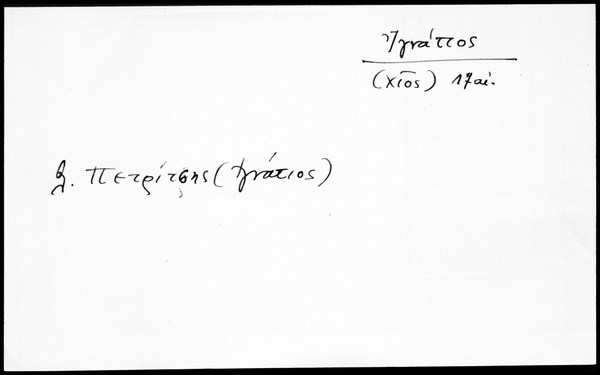 Ἰγνάτιος
(Χῖος) 17 αἰ.
βλ. Πετρίτσης (Ἰγνάτιος)